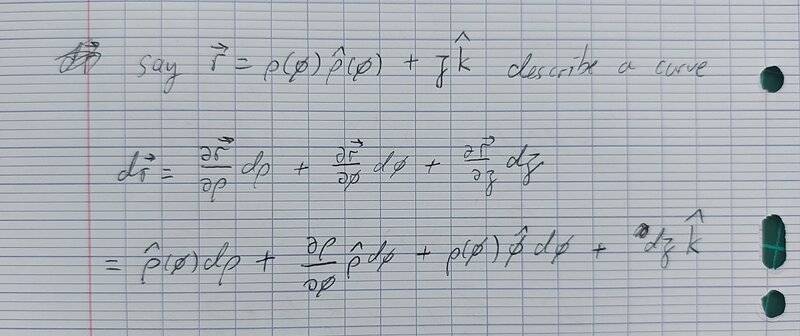 say r⃗ = ρ(φ) ρ̂(φ) + z k̂ describe a curve
dr⃗ = ∂r⃗/∂ρ dρ + ∂r⃗/∂φ dφ + ∂r⃗/∂z dz
= ρ̂(φ) dρ + ∂ρ/∂φ ρ̂ dφ + ρ(φ) φ̂ dφ + dz k̂